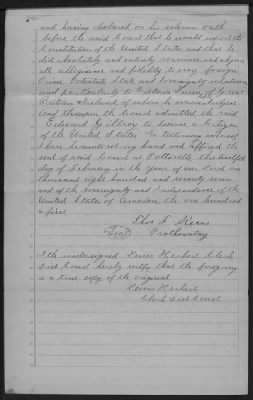 and having declared on his solemn oath
before the said Court that he would support the
Constitution of the United States and that he
did absolutely and entirely renounce and abjure
all allegiance and fidelity to every foreign
Prince Potentate State and Sovereignty whatsoever
and particularly to Victoria Queen of Great
Britain & Ireland of whom he was a subject
and thereupon the Court admitted the said
Edward Guilfoy to become a Citizen
of the United States. In testimony whereof
I have hereunto set my hand and affixed the
seal of said Court at Pottsville the twelfth
day of February in the year of our Lord one
thousand eight hundred and seventy seven
and of the sovereignty and Independence of the
United States of America the one hundred
& first.
Thos. F. Kerns
(Seal) Prothonotary
I the undersigned Lewis Herbert Clerk
Dist Court hereby certify that the foregoing
is a true copy of the original
Lewis Herbert
Clerk Dist Court